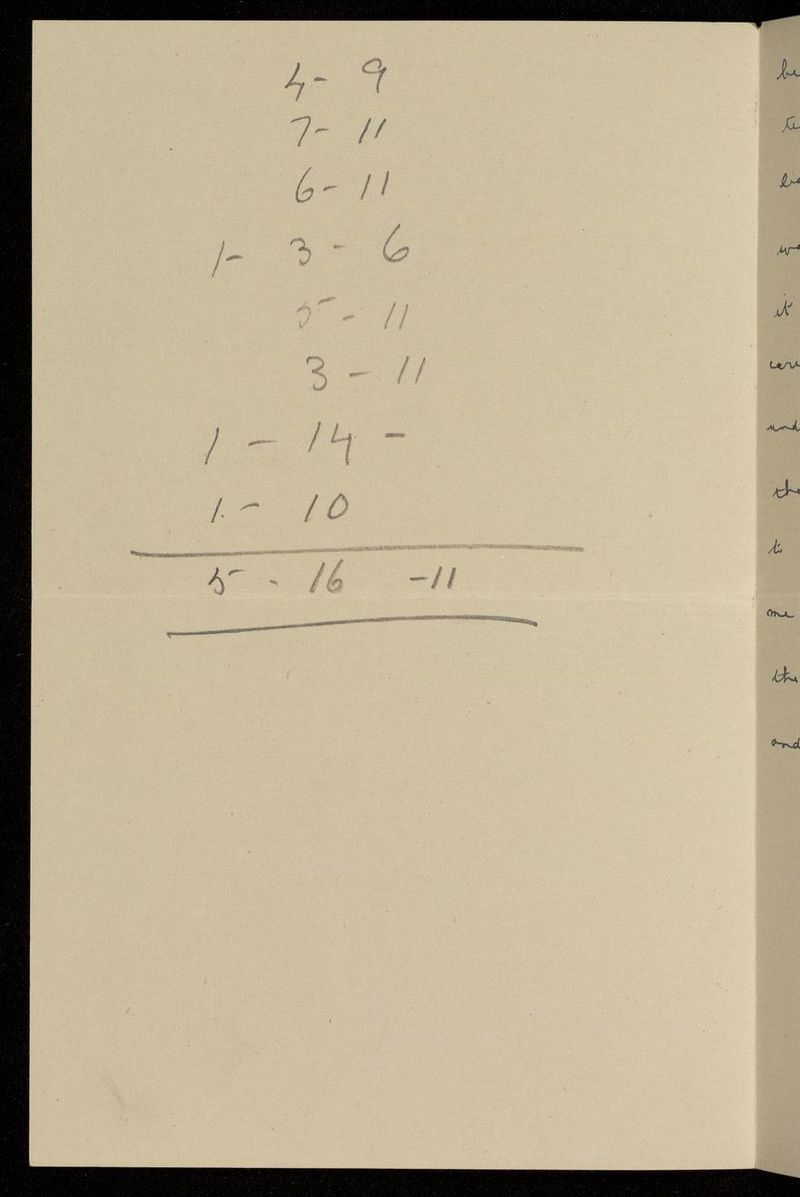 4- 9
7- 11
6- 11
1- 3 - 6
5 - 11
3 - 11
1 - 14 -
1. - 10
5 - 16 -11
it
und
the
to
me
the
and